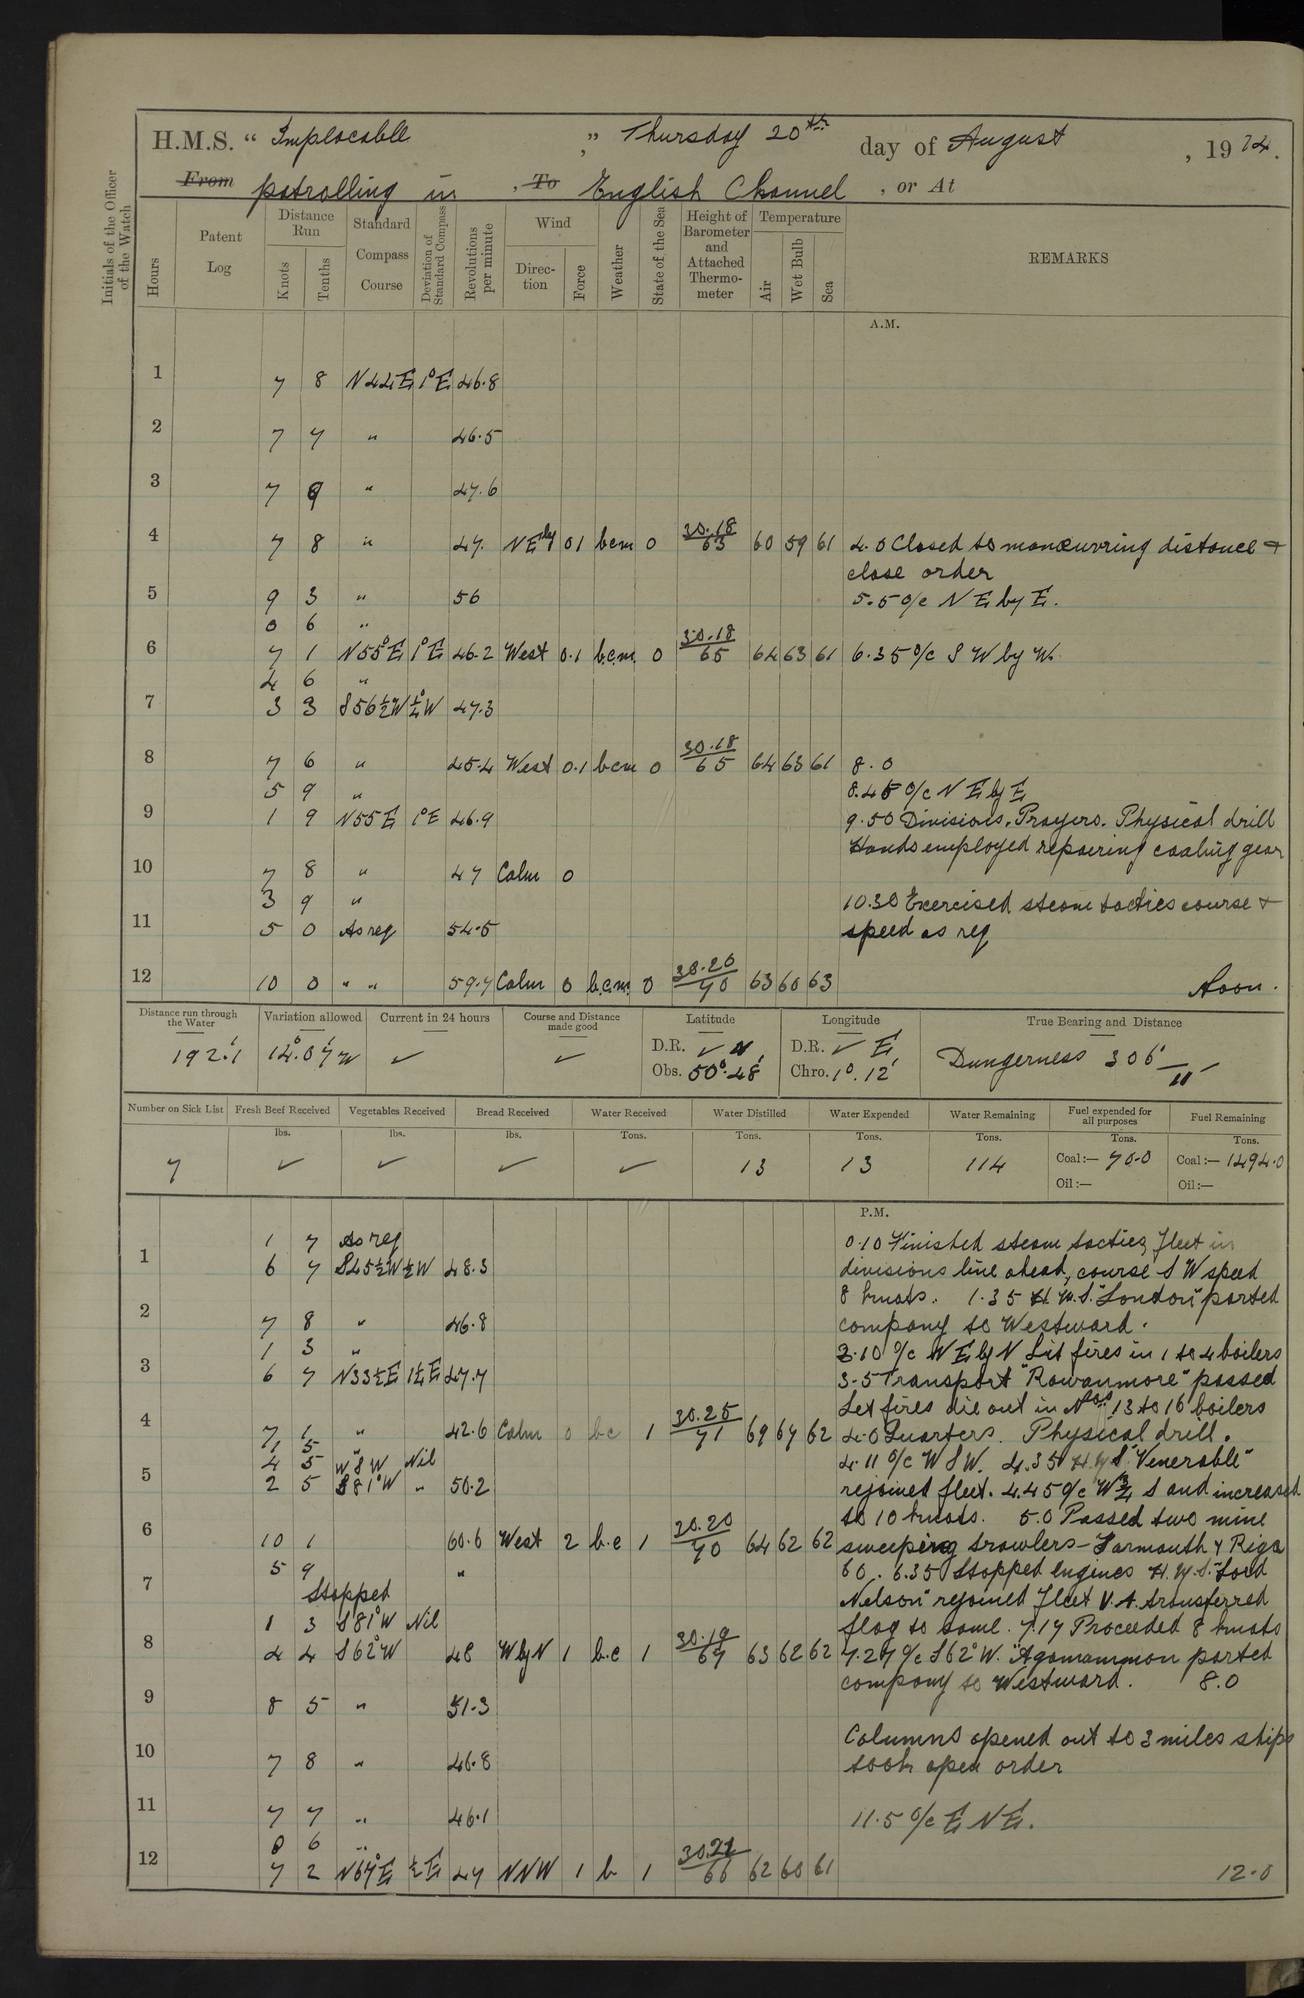 H.M.S. “ Implacable ,” Thursday 20th day of August , 1914.
From patrolling in , To English Channel , or At
Initials of the Officer of the Watch
Hours
Patent Log
Distance Run
Knots
Tenths
Standard Compass Course
Deviation of Standard Compass
Revolutions per minute
Wind
Direction
Force
Weather
State of the Sea
Height of Barometer and Attached Thermometer
Temperature
Air
Wet Bulb
Sea
REMARKS
A.M.
1 7 8 N44E 1°E 46.8
2 7 7 " 46.5
3 7 9 " 47.6
4 7 8 " 47. NEly 01 bcm 0 30.18 63 60 59 61 4.0 Closed to manœuvring distance +
close order
5 9 3 " 56 5.5 o/c NE by E.
0 6 "
6 7 1 N55°E 1°E 46.2 West 0.1 b.c.m. 0 30.18 65 64 63 61 6.35 o/c S W by W.
4 6 "
7 3 3 S56½W ½W 47.3
8 7 6 " 45.4 West 0.1 bcm 0 30.18 65 64 63 61 8.0
5 9 " 8.45 o/c N E by E
9 1 9 N55E 1°E 46.9 9.50 Divisions. Prayers. Physical drill
Hands employed repairing coaling gear
10 7 8 " 47 Calm 0
3 9 " 10.30 Exercised steam tactics course +
11 5 0 As req 54.5 speed as req
12 10 0 " " 59.7 Calm 0 b.c.m. 0 30.20 70 63 60 63 Noon.
Distance run through the Water
192.1
Variation allowed
14°.07 W
Current in 24 hours
✓
Course and Distance made good
✓
Latitude
D.R. ✓ N
Obs. 50°.48'
Longitude
D.R. ✓ E
Chro. 1°.12'
True Bearing and Distance
Dungerness 306° — 11'
Number on Sick List
7
Fresh Beef Received
lbs.
✓
Vegetables Received
lbs.
✓
Bread Received
lbs.
✓
Water Received
Tons.
✓
Water Distilled
Tons.
13
Water Expended
Tons.
13
Water Remaining
Tons.
114
Fuel expended for all purposes
Tons.
Coal:— 70.0
Oil:—
Fuel Remaining
Tons.
Coal:— 1494.0
Oil:—
P.M.
1 7 As req 0.10 Finished steam tactics, fleet in
1 6 7 S45½W ½W 48.3 divisions line ahead, course S W speed
8 knots. 1.35 H.M.S. "London" parted
2 7 8 " 46.8 company to Westward.
1 3 " 2.10 o/c N E by N Lit fires in 1 to 4 boilers
3 6 7 N33½E 1½E 47.7 3.5 Transport "Rowanmore" passed
Let fires die out in Nos 13 to 16 boilers
4 7 1 " 42.6 Calm 0 bc 1 30.25 71 69 67 62 4.0 Quarters. Physical drill.
1 5 "
4 5 W S W Nil 4.11 o/c W S W. 4.35 H.M.S. "Venerable"
5 2 5 S81°W " 50.2 rejoined fleet. 4.45 o/c W¾ S and increased
to 10 knots. 5.0 Passed two mine
6 10 1 60.6 West 2 b.c 1 30.20 70 64 62 62 sweeping trawlers - Yarmouth & Riga
5 9 " 60. 6.35 Stopped engines H.M.S. "Lord
7 Stopped Nelson" rejoined fleet V.A. transferred
1 3 S81°W Nil flag to same. 7.17 Proceeded 8 knots
8 4 4 S62°W 48 WbyN 1 b.c 1 30.19 67 63 62 62 7.27 o/c S62°W. "Agamammon parted
company to Westward. 8.0
9 8 5 " 51.3
Columns opened out to 3 miles ships
10 7 8 " 46.8 took open order
11 7 7 " 46.1 11.5 o/c E N E.
0 6 "
12 7 2 N67°E ½E 47 NNW 1 b 1 30.22 66 62 60 61 12.0